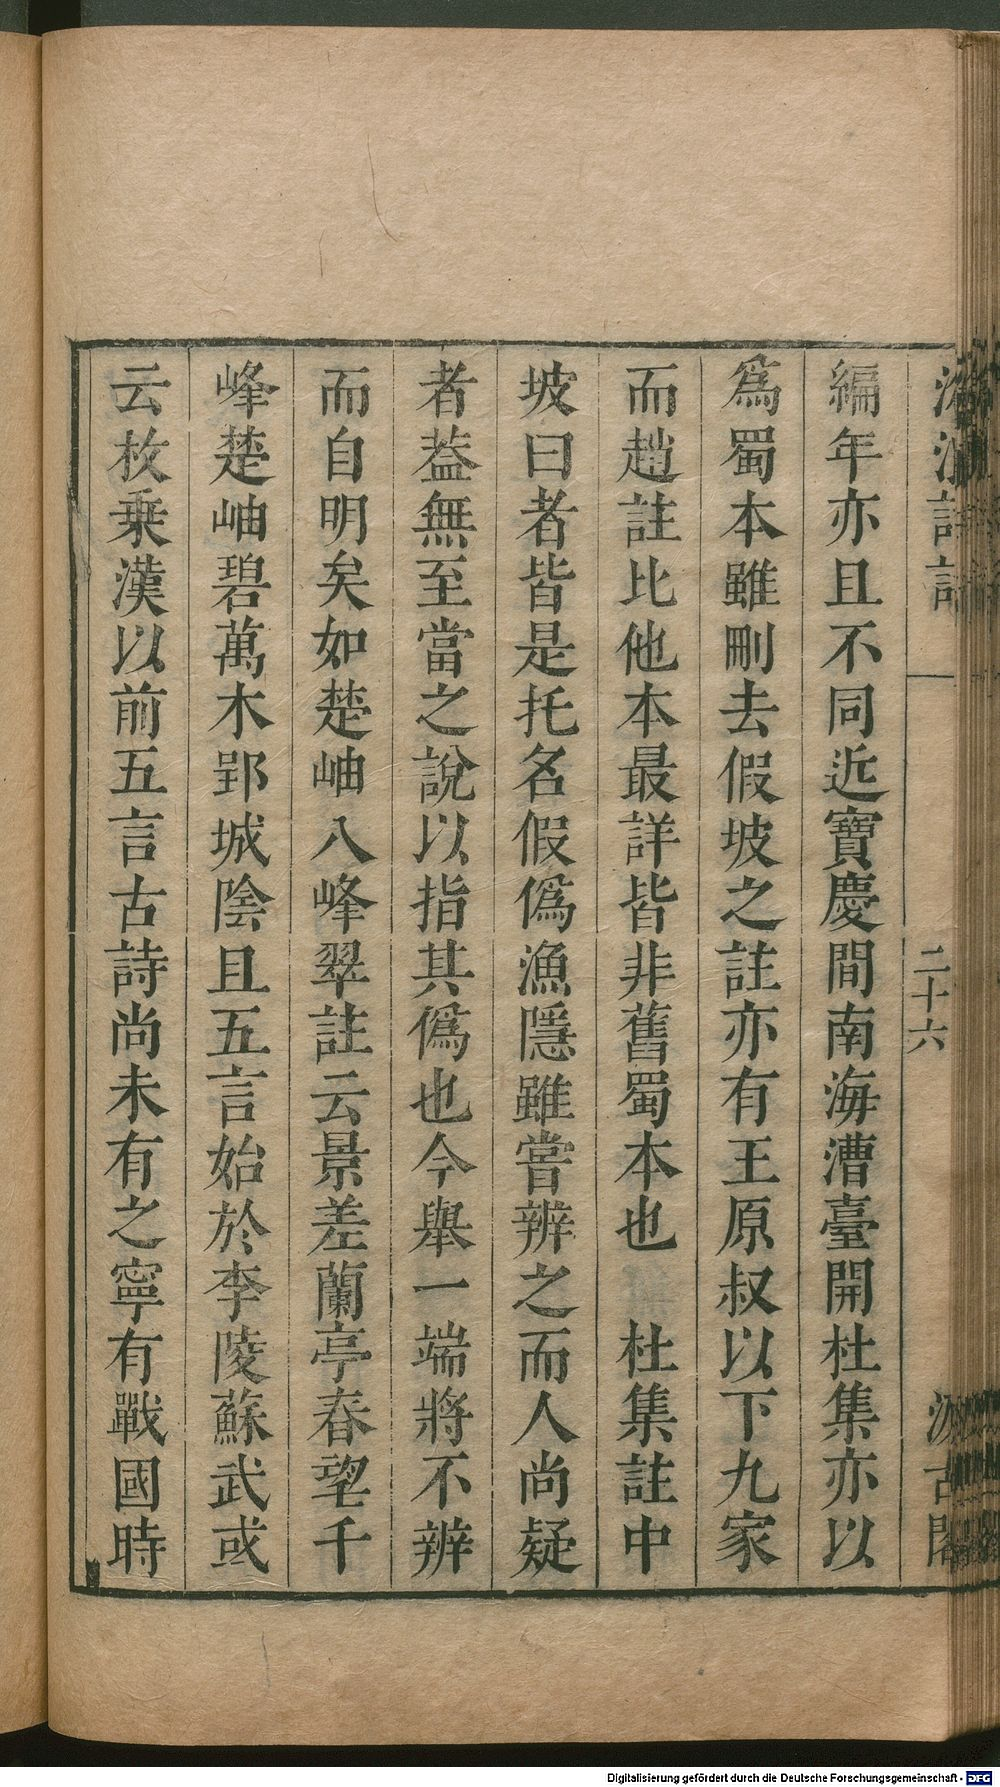 滄浪詩話
二十六
汲古閣
編年亦且不同近寶慶間南海漕臺開杜集亦以
爲蜀本雖刪去假坡之註亦有王原叔以下九家
而趙註比他本最詳皆非舊蜀本也　杜集註中
坡曰者皆是托名假僞漁隱雖嘗辨之而人尚疑
者葢無至當之說以指其僞也今舉一端將不辨
而自明矣如楚岫八峰翠註云景差蘭亭春望千
峰楚岫碧萬木郢城陰且五言始於李陵蘇武或
云枚乗漢以前五言古詩尚未有之寧有戰國時
Digitalisierung gefördert durch die Deutsche Forschungsgemeinschaft - DFG